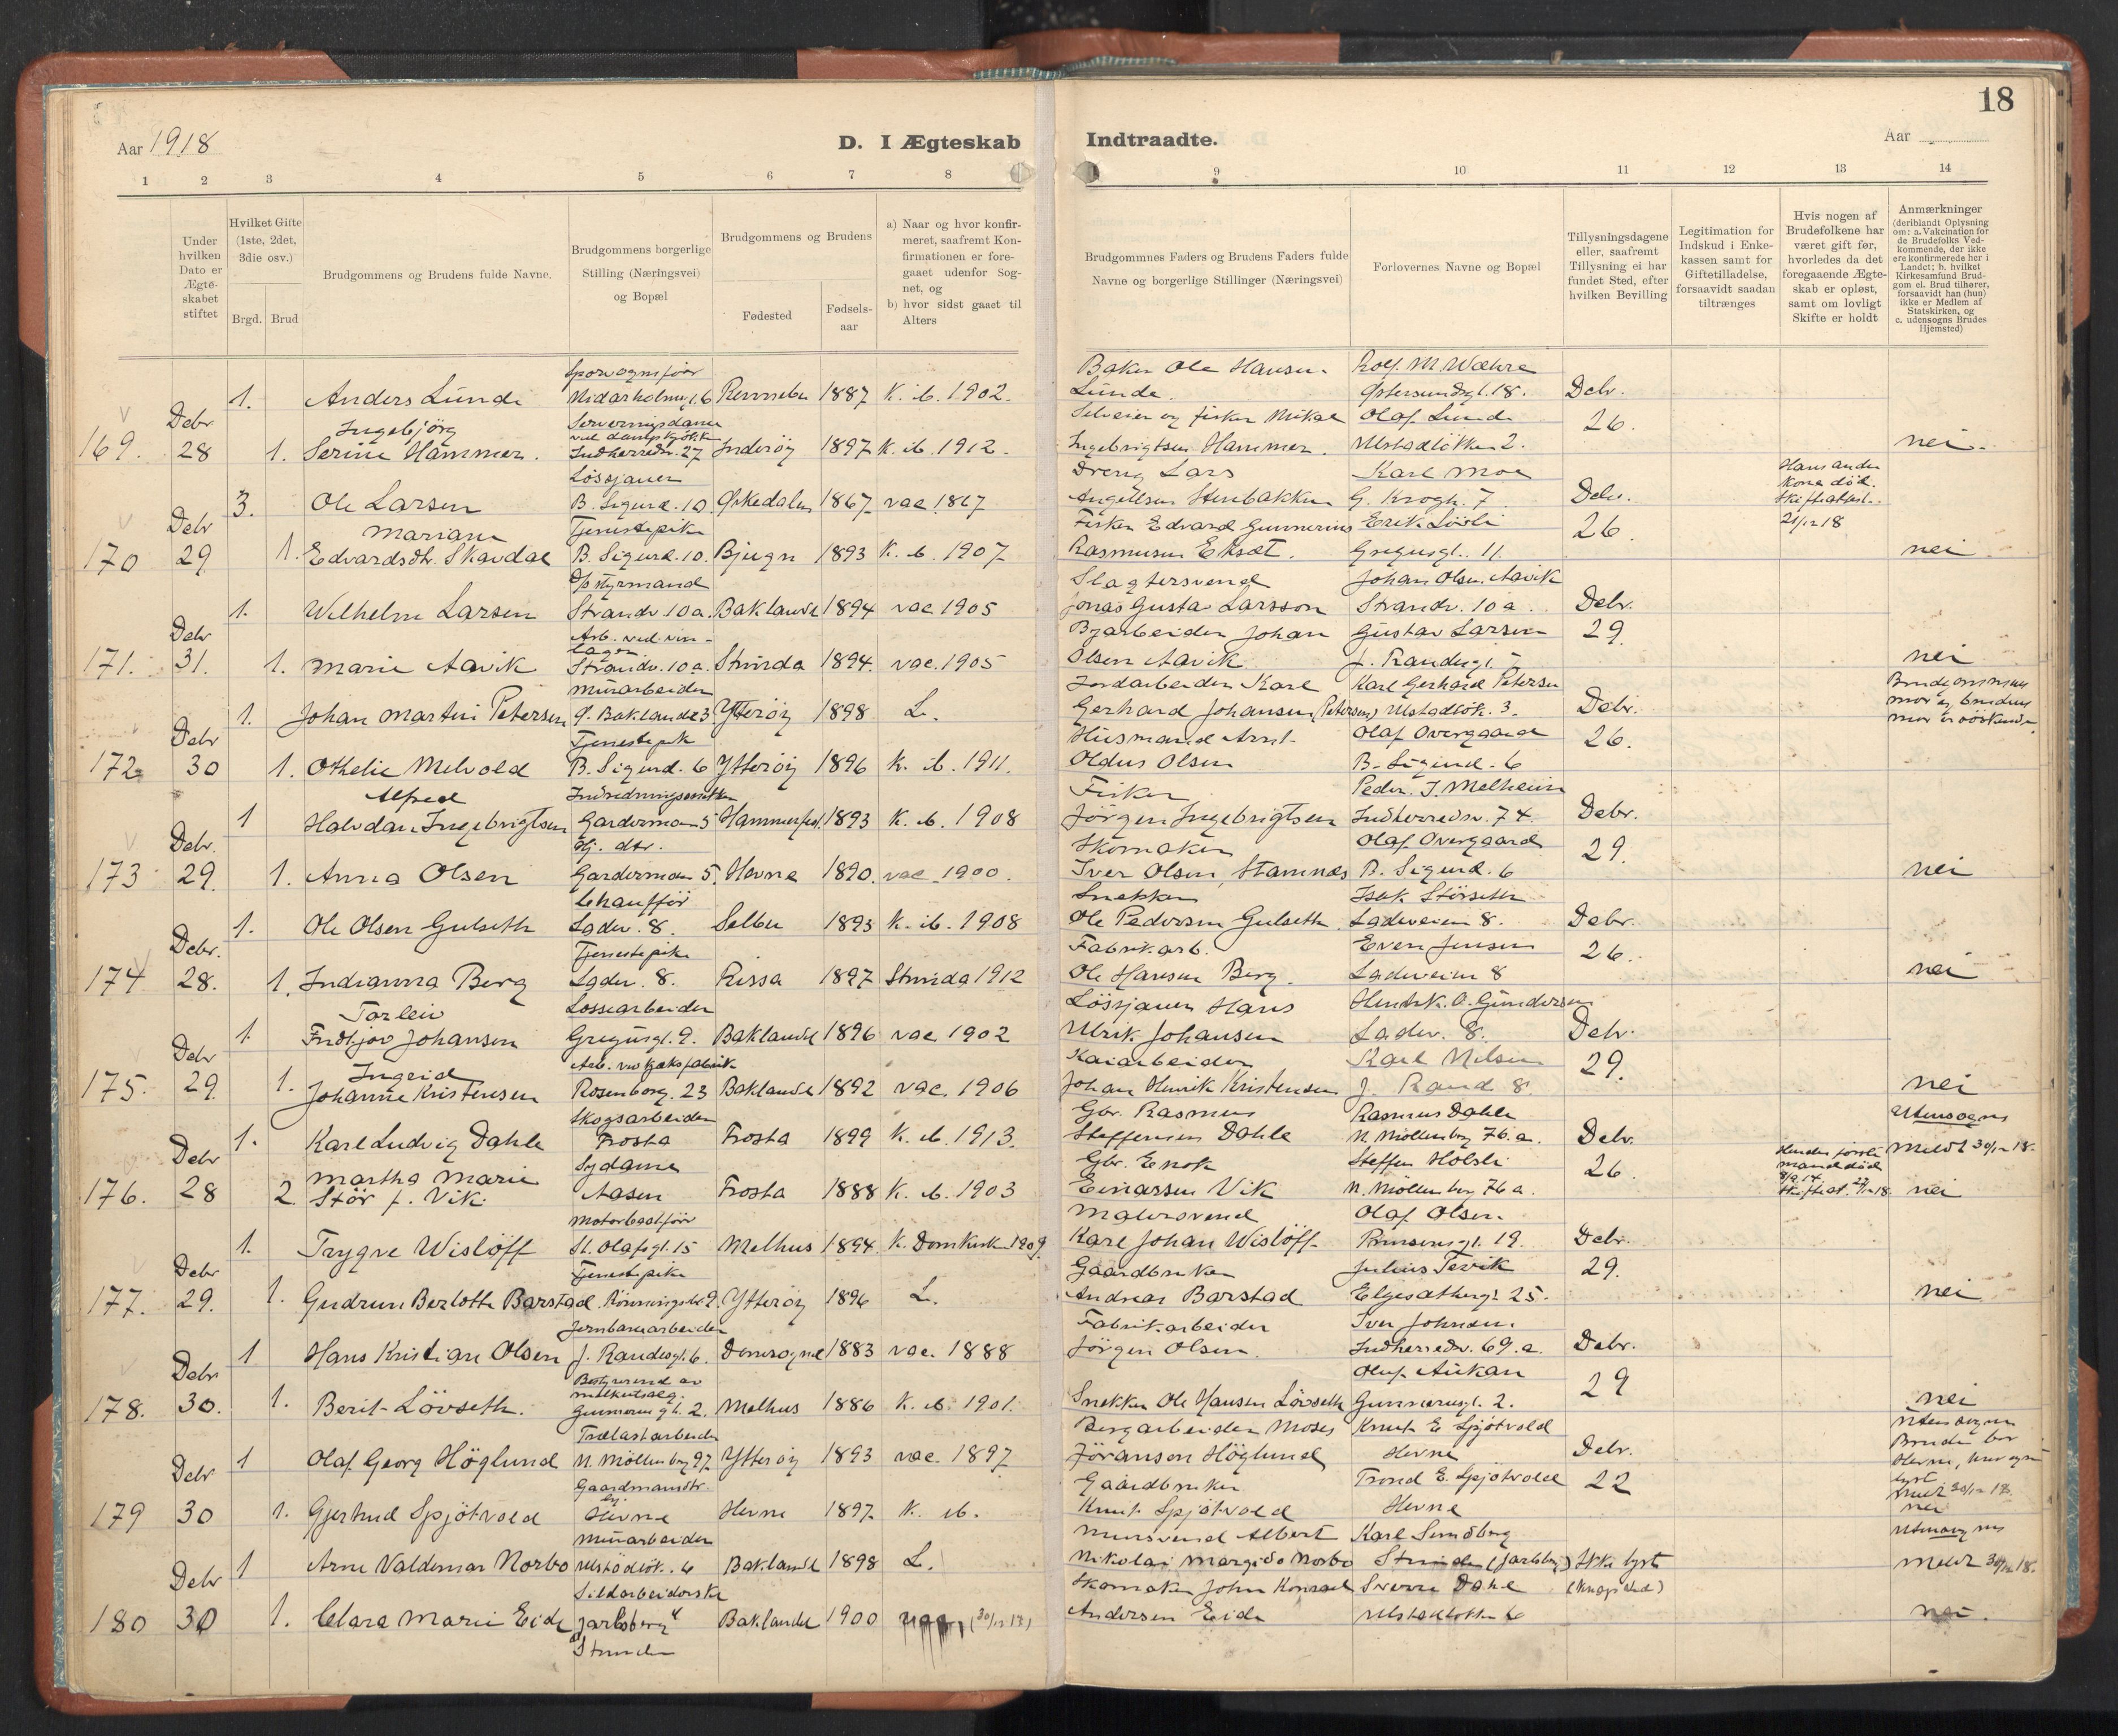 18
Aar 1918
D. I Ægteskab
Indtraadte.
Aar
1 2 3 4 5 6 7 8
9 10 11 12 13 14
Under hvilken Dato er Ægteskabet stiftet
Hvilket Gifte (1ste, 2det, 3die osv.)
Brgd. Brud
Brudgommens og Brudens fulde Navne.
Brudgommens borgerlige Stilling (Næringsvei) og Bopæl
Brudgommens og Brudens
Fødested
Fødsels-aar
a) Naar og hvor konfirmeret, saafremt Konfirmationen er foregaaet udenfor Sognet, og
b) hvor sidst gaaet til Alters
Brudgommnes Faders og Brudens Faders fulde Navne og borgerlige Stillinger (Næringsvei)
Forlovernes Navne og Bopæl
Tillysningsdagene eller, saafremt Tillysning ei har fundet Sted, efter hvilken Bevilling
Legitimation for Indskud i Enkekassen samt for Giftetilladelse, forsaavidt saadan tiltrænges
Hvis nogen af Brudefolkene har været gift før, hvorledes da det foregaaende Ægteskab er opløst, samt om lovligt Skifte er holdt
Anmærkninger (deriblandt Oplysning om: a. Vakcination for de Brudefolks Vedkommende, der ikke ere konfirmerede her i Landet; b. hvilket Kirkesamfund Brudgom el. Brud tilhører, forsaavidt han (hun) ikke er Medlem af Statskirken, og c. udensogns Brudes Hjemsted)
1. Anders Lunde Nidarholmsgt. 6 Rennebu 1887 K. ib. 1902. Baker Ole Hansen Lunde. Rolf M. Wæhre Østersundsgt. 18. Debr.
169. Debr 28 1. Ingebjörg Serine Hammer. Serveringsdame ved dampkjøkken Indherredsv. 27 Inderöy 1897 K. ib. 1912. Selveier og fisker Mikal Ingebrigtsen Hammer. Olaf Lunde Ulstadløkken 2. 26. nei.
3. Ole Larsen Løssjauer B. Sigurd. 10. Orkedalen 1867 vac 1867 Dreng Lars Angellsen Stenbakken Karl Moe G. Krogh. 7 Debr. Hans anden kone död. Skifteattest. 21/12 18
170 Debr 29 1. Mariane Edvardsdtr. Skavdal Tjenestepike B. Sigurd. 10. Bjugn 1893 K. ib. 1907 Fisker Edvard Gunnerius Rasmussen Erik Lövli Gregusgt. 11. 26. nei
1. Wilhelm Larsen Strandv. 10 a. Baklandet 1894 vac 1905 Slagtersvend Jonas Gustav Larsson Johan Olsen Aavik Strandv. 10 a. Debr.
171. Debr 31. 1. Marie Aavik Arb. ved vinlager Strandv. 10 a. Strinda 1894. vac. 1905 Byarbeider Johan Olsen Aavik Gustav Larsen J. Randesgt. 29. nei
1. Johan Martin Petersen Murarbeider Ø. Baklandet 3 Ytteröy 1898 L. Jordarbeider Karl Gerhard Johansen (Petersen) Karl Gerhard Petersen Ulstadløk. 3. Debr. Brudgommens mor og brudens mor er söskende.
172. Debr 30 1. Othelie Melvold Tjenestepik B. Sigurd. 6 Ytteröy 1896 K. ib. 1911. Husmand Arnt Oldus Olsen Olaf Overgaard B. Sigurd. 6 26.
1 Alfred Halvdan Ingebrigtsen Gardermoen 5 Hammerfest 1893 K. ib. 1908 Fisker Jörgen Ingebrigtsen Peder. J. Melheim Indherredsv. 74. Debr.
173 Debr. 29. 1. Anna Olsen Hj. dtr. Gardermoen 5. Hevne 1890. vac. 1900. Skomaker Iver Olsen Stamnes Olaf Overgaard B. Sigurd. 6 29. nei
1. Ole Olsen Gulseth Chauffør Ladev. 8. Selbu 1893 K. ib. 1908 Snekker Ole Pedersen Gulseth. Isak Störseth Ladeveien 8. Debr.
174 Debr. 28. 1. Indianna Berg Tjenestepike Ladev. 8. Rissa 1897 Strinda 1912 Fabrikarb. Ole Hansen Berg. Even Jensen Ladeveien 8 26. nei
1. Torleiv Fridtjov Johansen Lossearbeider Gregusgt. 9. Baklandet 1896 vac 1902 Løssjauer Hans Ulrik Johansen Henrik. O. Gundersen Ladev. 8. Debr.
175. Debr 29. 1. Ingrid Johanne Kristensen Arb. ved kjeksfabrik Rosenborg. 23 Baklandet 1892 vac. 1906 Kaiarbeider Johan Henrik Kristensen Karl Nilsen J. Rand 8. 29. nei
1. Karl Ludvig Dahle Skogsarbeider Frosta Frosta 1899 K. ib. 1913. Gbr. Rasmus Steffensen Dahle Rasmus Dahle N. Möllenberg 76. a. Debr. Utensogns Meldt 30/12 18.
176. Debr 28 2 Martha Marie Stör f. Vik. Sydame Aasen Frosta 1888 K. ib. 1903 Gbr. Enok Einarsen Vik Steffen Holsli N. Möllenberg 76 a. 26. Hendes første mand död Skifteat. 27/12 18. nei
1. Trygve Wislöff Motorbaatfører St. Olafsgt. 15 Melhus 1894. K. Domkirken 1909. Malersvend Karl Johan Wislöff Olaf Olsen. Prinsensgt. 19. Debr.
177. Debr 29. 1. Gudrun Berlotte Barstad. Tjenestepike Rönningsbk. 2. Ytteröy 1896 L. Gaardbruker Andreas Barstad Julius Tevik Elgesætergt. 25. 29. nei
1 Hans Kristian Olsen Jernbanearbeider J. Randesgt. 6. Domsognet 1883 vac. 1888 Fabrikarbeider Jörgen Olsen. Iver Johnsen. Indherredsv. 69. a. Debr.
178. Debr 30. 1. Berit Lövseth. Bestyrerinde av melkeutsalg. Gunnerusgt. 2. Melhus 1886 K. ib. 1901. Snekker Ole Hansen Lövseth Oluf Aukan Gunnerusgt. 2. 29 nei
1 Olaf Georg Höglund Trælastarbeider N. Möllenberg 97 Ytteröy 1893 vac. 1897 Bergarbeider Moses Jöranson Höglund Knut E Spjötvold Hevne Debr. Utensogns Bruden bor Hevne, lyst
179 Debr 30 1. Gjertrud Spjötvold Gaardmandsdtr. Hevne Hevne 1897 K. ib. Gaardbruker Knut Spjötvold Trond E. Spjötvold Hevne 22 meldt 30/12 18. nei
1 Arne Valdemar Norbo Murarbeider Ulstadløk. 6 Baklandet 1898 L. Mursvend Albert Nikolai Margido Norbo Karl Sundberg Strinden (Jarlsberg) Ikke lyst Utensogns Meldt 30/12 18.
180 Debr 30 1. Clara Marie Eide Sildarbeiderske Jarlsberg Strinden Baklandet 1900 (30/12 18) Skomaker John Konrad Andersen Eide Sverre Dahl Ulstadløkken 6 nei.